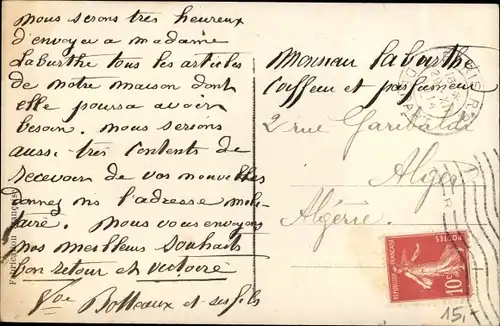 nous serons très heureux
d'envoyer a madame
Laburthe tous les articles
de notre maison dont
elle poura avoir
besoin. nous serions
aussi très contents de
recevoir de vos nouvelles
donnez ns l'adresse mili-
taire. nous vous envoyons
nos meilleurs souhaits
bon retour et victoire
Vve Botteaux et ses fils
Fabrication Française
Monsieur Laburthe
Coiffeur et parfumeur
2 rue Garibaldi
Alger
Algérie
RÉPUBLIQUE FRANÇAISE
10c
15,-